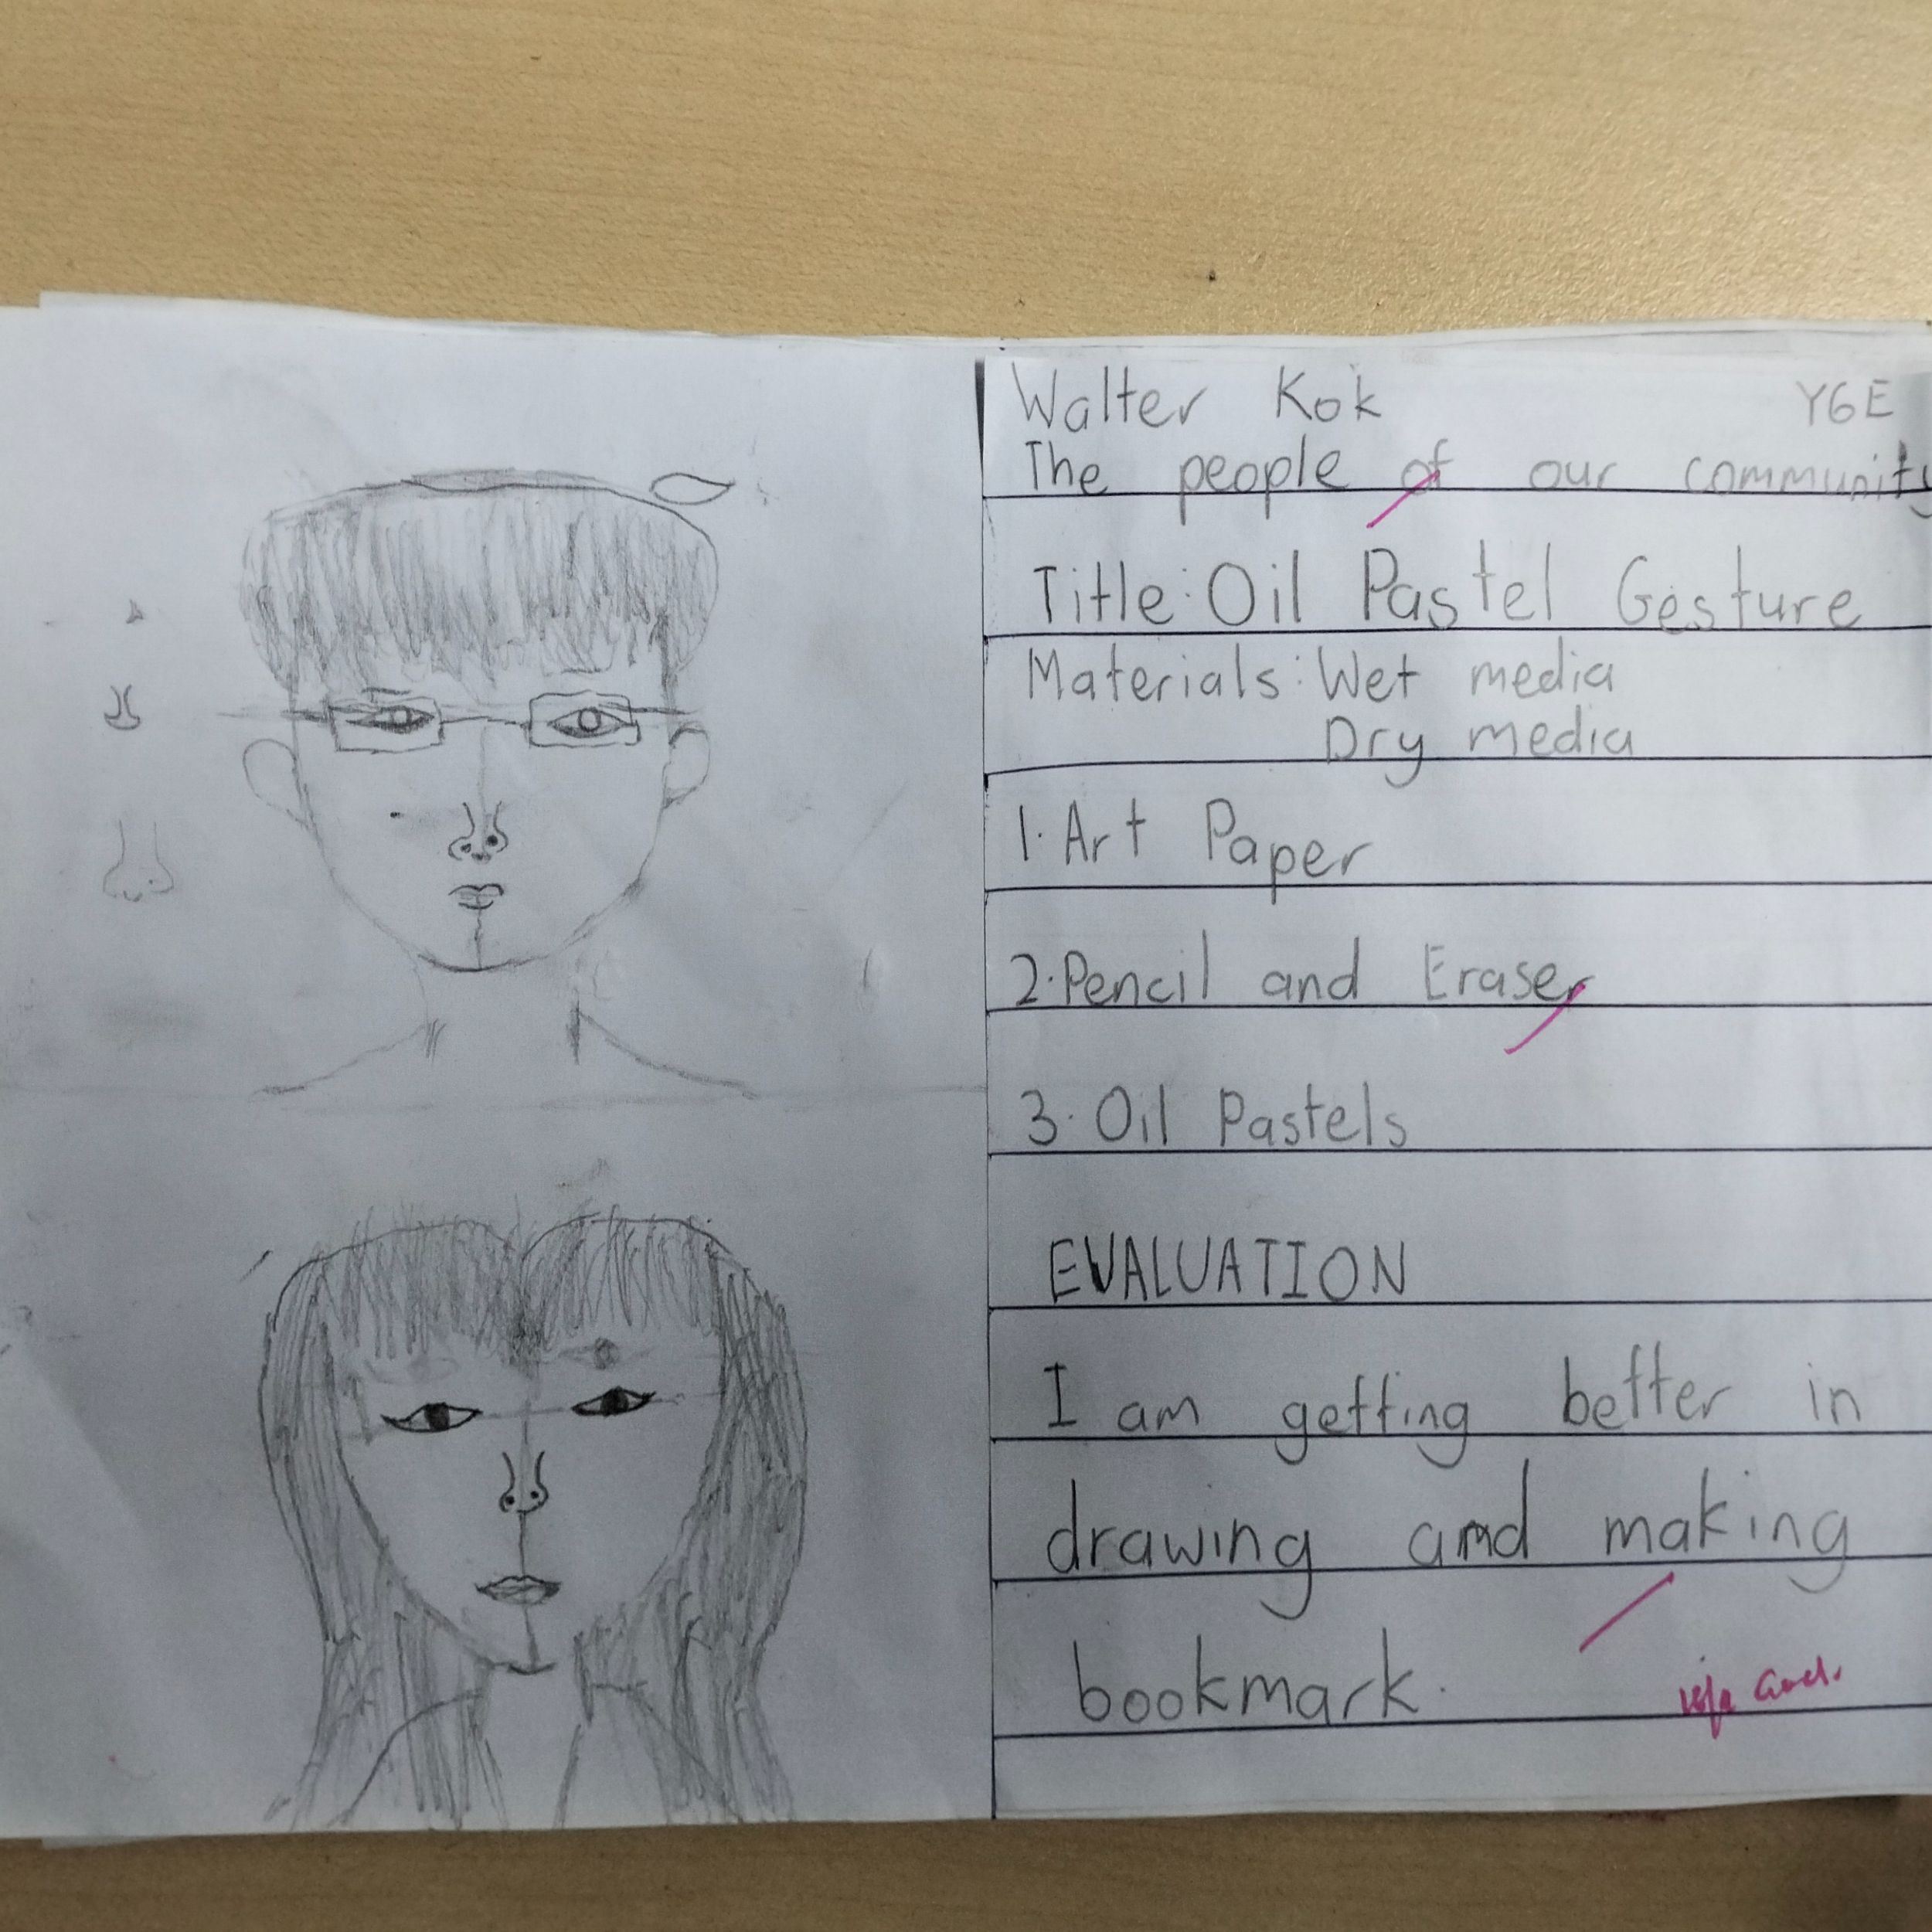 Walter Kok Y6E
The people of our community
Title: Oil Pastel Gesture
Materials: Wet media
Dry media
1. Art Paper
2. Pencil and Eraser
3. Oil Pastels
EVALUATION
I am getting better in
drawing and making
bookmark.